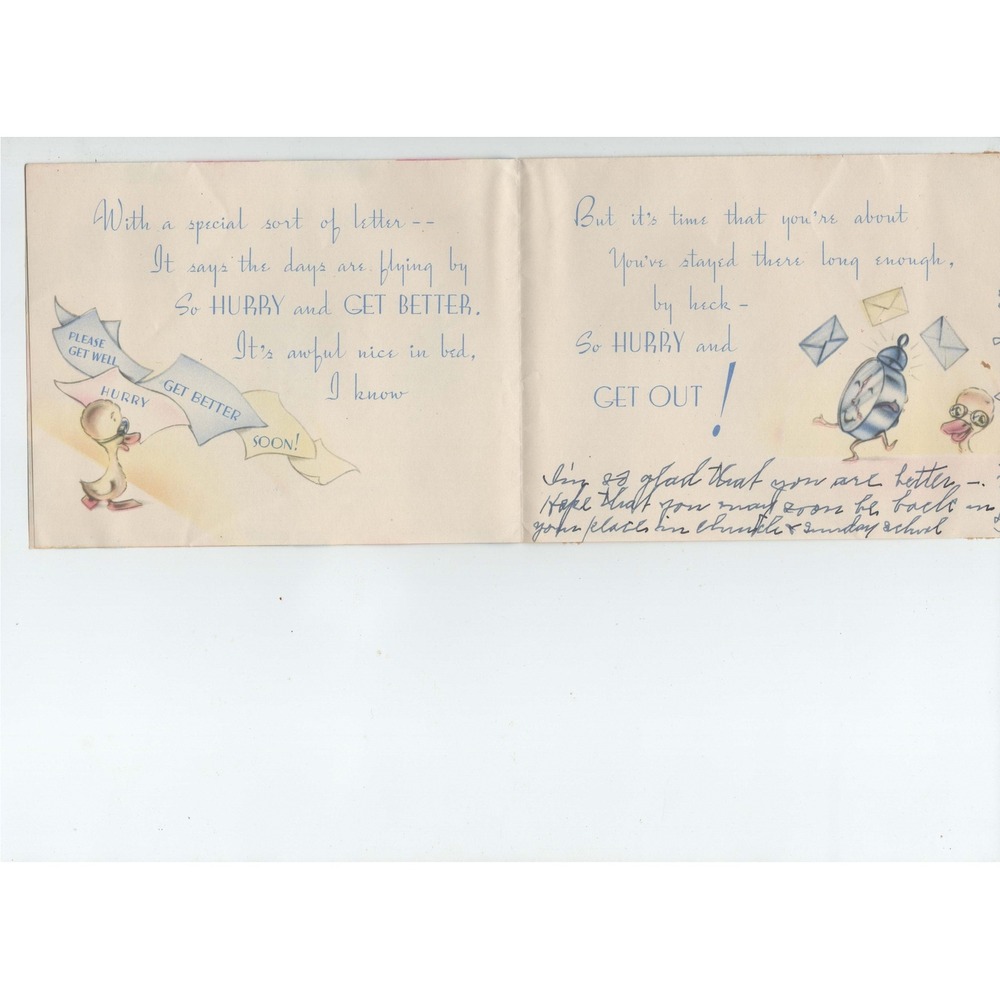 With a special sort of letter --
It says the days are flying by
So HURRY and GET BETTER.
It's awful nice in bed,
I know
PLEASE
GET WELL
HURRY
GET BETTER
SOON!
But it's time that you're about
You've stayed there long enough,
by heck -
So HURRY and
GET OUT!
I'm so glad that you are better -.
Hope that you may soon be back in
your places in church & sunday school